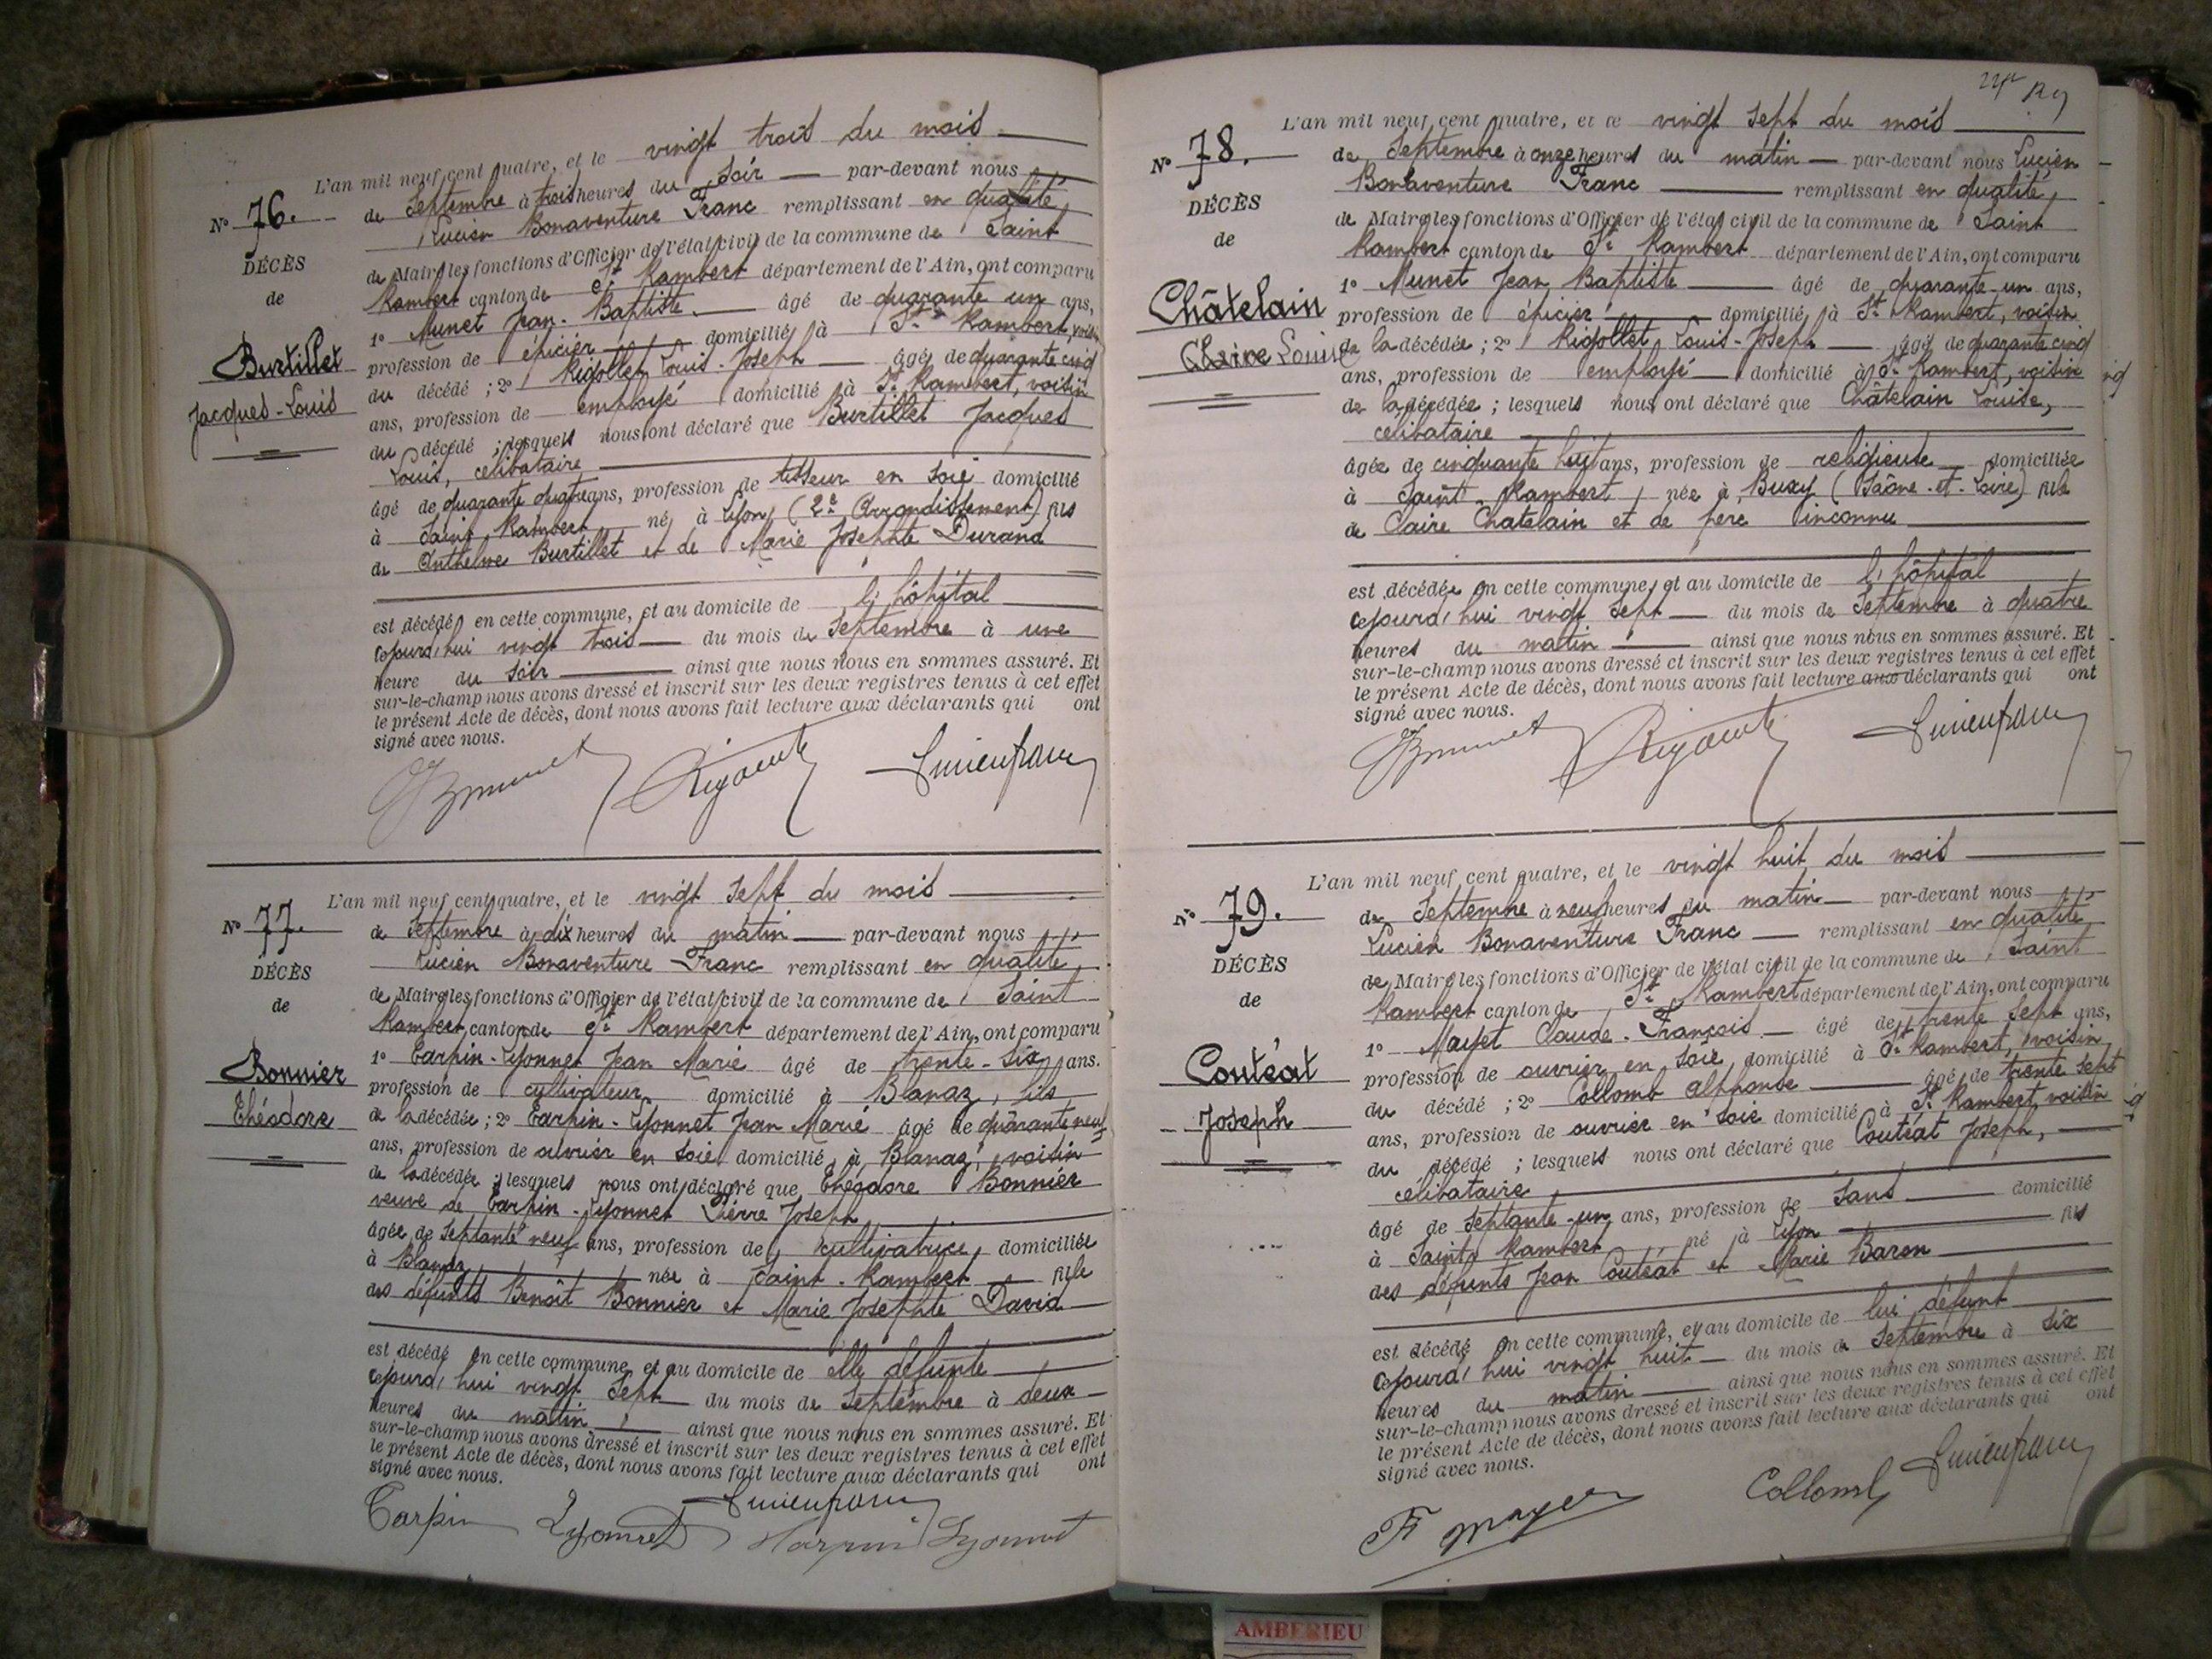 L'an mil neuf cent quatre, et le vingt trois du mois
de Septembre à trois heures du soir par-devant nous
Lucien Bonaventure Franc remplissant en qualité
de Maire les fonctions d'Officier de l'état civil de la commune de Saint
Rambert canton de St Rambert département de l'Ain, ont comparu
1º Munet Jean-Baptiste âgé de quarante un ans,
profession de épicier domicilié à St Rambert, voisin
du décédé ; 2º Rigollet Louis-Joseph âgé de quarante cinq
ans, profession de employé domicilié à St Rambert, voisin
du décédé ; lesquels nous ont déclaré que Burtillet Jacques
Louis, célibataire
âgé de quarante quatre ans, profession de tisseur en soie domicilié
à Saint Rambert né à Lyon (2e Arrondissement) fils
de Anthelme Burtillet et de Marie Josephte Durand
est décédé en cette commune, et au domicile de l'hôpital
cejourd'hui vingt trois du mois de Septembre à une
heure du soir ainsi que nous nous en sommes assuré. Et
sur-le-champ nous avons dressé et inscrit sur les deux registres tenus à cet effet
le présent Acte de décès, dont nous avons fait lecture aux déclarants qui ont
signé avec nous.
Nº 76.
DÉCÈS
de
Burtillet
Jacques-Louis
Lucien Franc
L'an mil neuf cent quatre, et le vingt sept du mois
de Septembre à dix heures du matin par-devant nous
Lucien Bonaventure Franc remplissant en qualité
de Maire les fonctions d'Officier de l'état civil de la commune de Saint
Rambert canton de St Rambert département de l'Ain, ont comparu
1º Tarpin-Lyonnet Jean Marie âgé de trente-six ans.
profession de cultivateur domicilié à Blanaz, fils
de la décédée ; 2º Tarpin-Lyonnet Jean Marie âgé de quarante neuf
ans, profession de ouvrier en soie domicilié à Blanaz, voisin
de la décédée ; lesquels nous ont déclaré que Théodore Bonnier
veuve de Tarpin-Lyonnet Pierre Joseph
âgée de septante neuf ans, profession de cultivatrice, domiciliée
à Blanaz née à Saint-Rambert fille
des défunts Benoît Bonnier et Marie Josephte David
est décédé en cette commune, et au domicile de elle défunte
cejourd'hui vingt sept du mois de Septembre à deux
heures du matin ainsi que nous nous en sommes assuré. Et
sur-le-champ nous avons dressé et inscrit sur les deux registres tenus à cet effet
le présent Acte de décès, dont nous avons fait lecture aux déclarants qui ont
signé avec nous.
Nº 77.
DÉCÈS
de
Bonnier
Théodore
Lucien Franc
Tarpin Lyonnet Tarpin Lyonnet
129
L'an mil neuf cent quatre, et le vingt sept du mois
de Septembre à onze heures du matin par-devant nous Lucien
Bonaventure Franc remplissant en qualité
de Maire les fonctions d'Officier de l'état civil de la commune de Saint
Rambert canton de St Rambert département de l'Ain, ont comparu
1º Munet Jean Baptiste âgé de quarante-un ans,
profession de épicier domicilié à St Rambert, voisin
de la décédée ; 2º Rigollet Louis-Joseph âgé de quarante cinq
ans, profession de employé domicilié à St Rambert, voisin
de la décédée ; lesquels nous ont déclaré que Châtelain Louise,
célibataire
âgée de cinquante huit ans, profession de religieuse domiciliée
à Saint-Rambert, née à Buxy (Saône-et-Loire) fille
de Claire Chatelain et de père inconnu
est décédée en cette commune, et au domicile de l'hôpital
cejourd'hui vingt sept du mois de Septembre à quatre
heures du matin ainsi que nous nous en sommes assuré. Et
sur-le-champ nous avons dressé et inscrit sur les deux registres tenus à cet effet
le présent Acte de décès, dont nous avons fait lecture aux déclarants qui ont
signé avec nous.
Nº 78.
DÉCÈS
de
Châtelain
Claire Louise
Lucien Franc
L'an mil neuf cent quatre, et le vingt huit du mois
de Septembre à neuf heures du matin par-devant nous
Lucien Bonaventure Franc remplissant en qualité
de Maire les fonctions d'Officier de l'état civil de la commune de Saint
Rambert canton de St Rambert département de l'Ain, ont comparu
1º Mayet Claude-François âgé de trente sept ans,
profession de ouvrier en soie, domicilié à St Rambert, voisin
du décédé ; 2º Collomb Alphonse âgé de trente sept
ans, profession de ouvrier en soie domicilié à St Rambert, voisin
du décédé ; lesquels nous ont déclaré que Coutéat Joseph,
célibataire
âgé de septante-un ans, profession de sans domicilié
à Saint Rambert né à Lyon fils
des défunts Jean Coutéat et Marie Baron
est décédé en cette commune, et au domicile de lui défunt
cejourd'hui vingt huit du mois de Septembre à six
heures du matin ainsi que nous nous en sommes assuré. Et
sur-le-champ nous avons dressé et inscrit sur les deux registres tenus à cet effet
le présent Acte de décès, dont nous avons fait lecture aux déclarants qui ont
signé avec nous.
Nº 79.
DÉCÈS
de
Coutéat
Joseph
F Mayet Collomb Lucien Franc
AMBERIEU